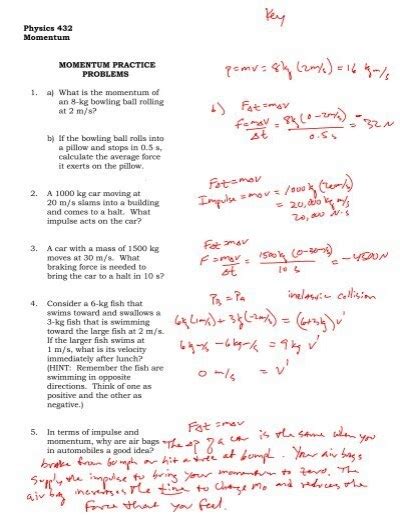 Key
Physics 432
Momentum
MOMENTUM PRACTICE
PROBLEMS
1. a) What is the momentum of
an 8-kg bowling ball rolling
at 2 m/s?
p=mv = 8kg (2m/s) = 16 kg m/s
b) If the bowling ball rolls into
a pillow and stops in 0.5 s,
calculate the average force
it exerts on the pillow.
b) FΔt = mΔv
F = mΔv/Δt = 8kg (0-2m/s)/0.5 s = -32N
2. A 1000 kg car moving at
20 m/s slams into a building
and comes to a halt. What
impulse acts on the car?
FΔt = mΔv
Impulse = mΔv = 1000 kg (20m/s)
= 20,000 kg m/s
20,000 N·s
3. A car with a mass of 1500 kg
moves at 30 m/s. What
braking force is needed to
bring the car to a halt in 10 s?
FΔt = mΔv
F = mΔv/Δt = 1500kg (0-30m/s)/10 s = -4500N
4. Consider a 6-kg fish that
swims toward and swallows a
3-kg fish that is swimming
toward the large fish at 2 m/s.
If the larger fish swims at
1 m/s, what is its velocity
immediately after lunch?
(HINT: Remember the fish are
swimming in opposite
directions. Think of one as
positive and the other as
negative.)
PB = PA inelastic collision
6kg(1m/s) + 3kg(-2m/s) = (6+3kg)v'
6kg m/s - 6kg m/s = 9kg v'
0 m/s = v'
5. In terms of impulse and
momentum, why are air bags
in automobiles a good idea?
FΔt = mΔv
The Δp of a car is the same when you
brake from 60mph or hit a tree at 60mph. Your air bags
supply the impulse to bring your momentum to zero. The
air bag increases the time to change mo and reduces the
force that you feel.